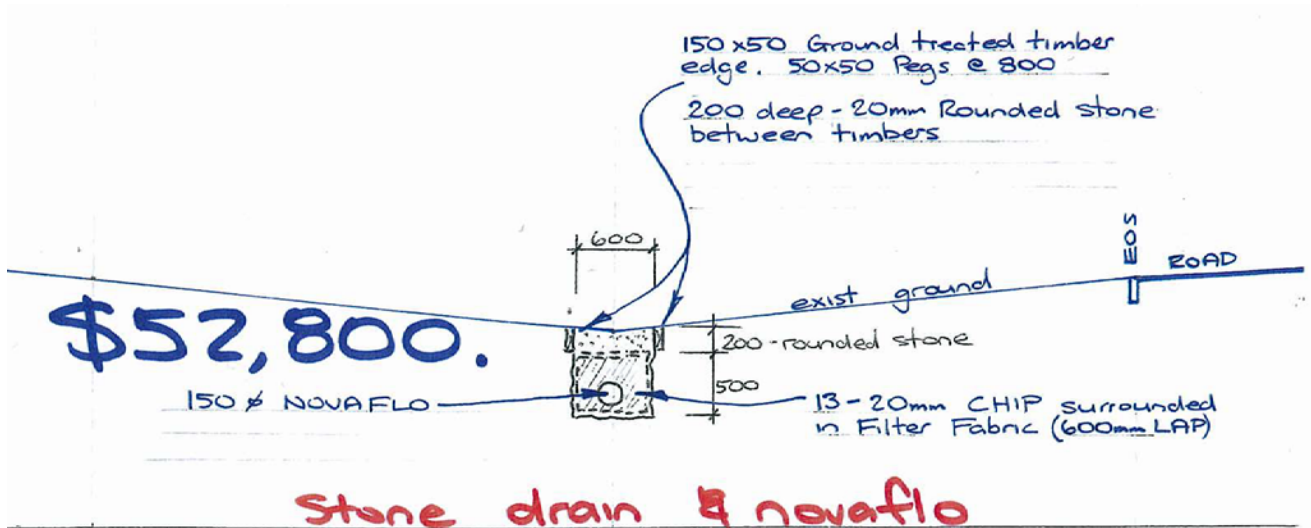 150x50 Ground treated timber
edge. 50x50 Pegs @ 800
200 deep - 20mm Rounded stone
between timbers
600
EOS
ROAD
exist ground
$52,800.
200-rounded stone
500
150 ø NOVAFLO
13-20mm CHIP surrounded
in Filter Fabric (600mm LAP)
Stone drain & novaflo